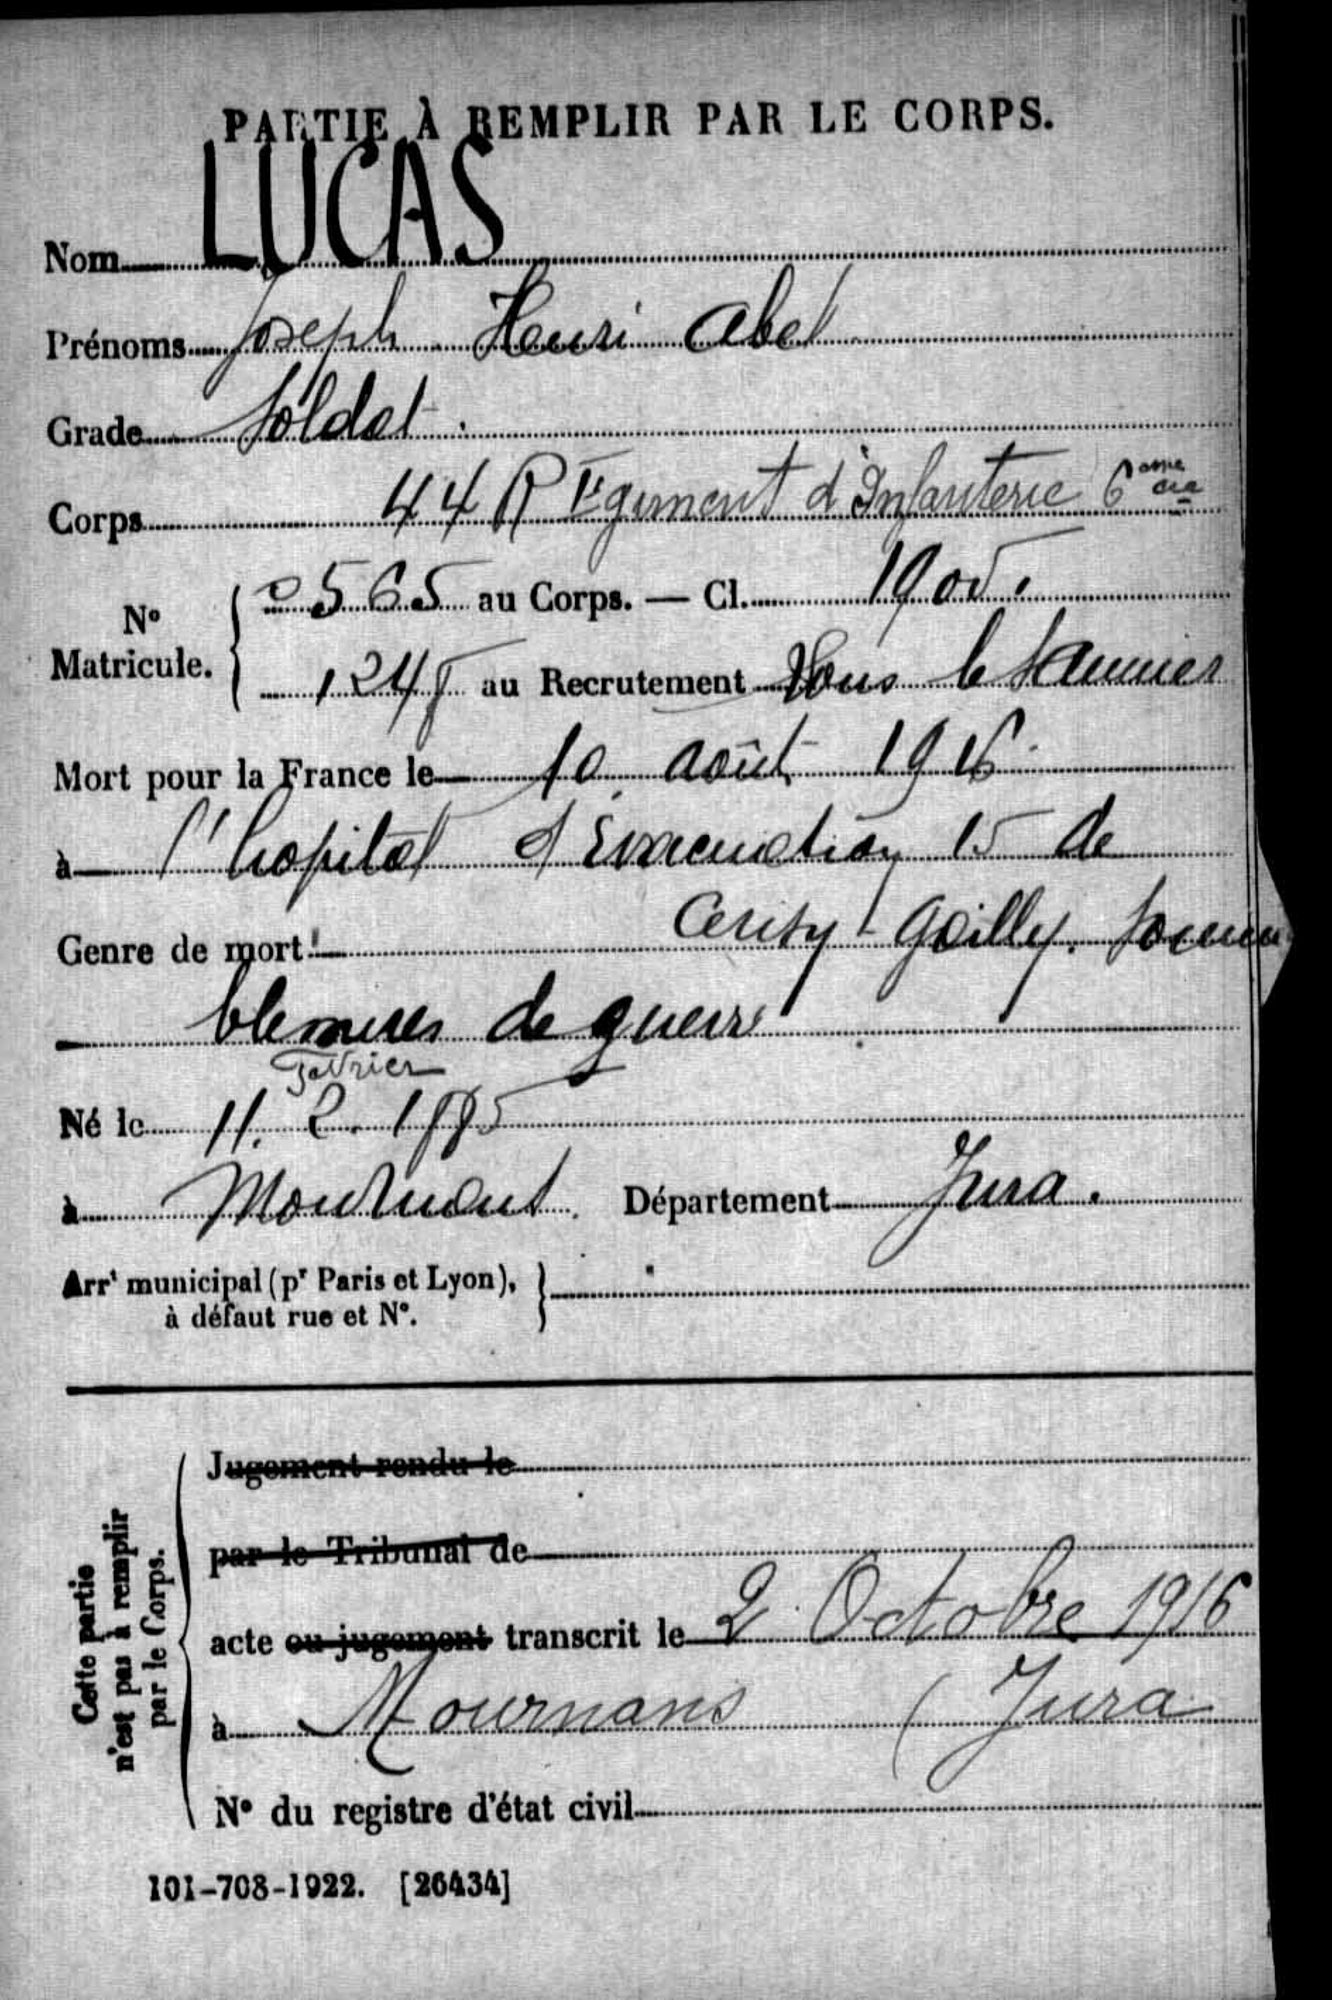 PARTIE À REMPLIR PAR LE CORPS.
Nom LUCAS
Prénoms Joseph Henri Abel
Grade Soldat.
Corps 44 Régiment d'Infanterie 6eme cie
No Matricule. 0565 au Corps. — Cl. 1905.
1248 au Recrutement Lons le Saunier
Mort pour la France le 10 août 1916.
à l'hopital d'Evacuation 15 de
Cerisy-Gailly. Somme
Genre de mort
blessures de guerre
Février
Né le 11. 2. 1885
à Département Jura.
Arrt municipal (pr Paris et Lyon),
à défaut rue et No.
Cette partie
n'est pas à remplir
par le Corps.
Jugement rendu le
par le Tribunal de
acte ou jugement transcrit le 2 Octobre 1916
à Mournans (Jura
No du registre d'état civil
101-708-1922. [26434]